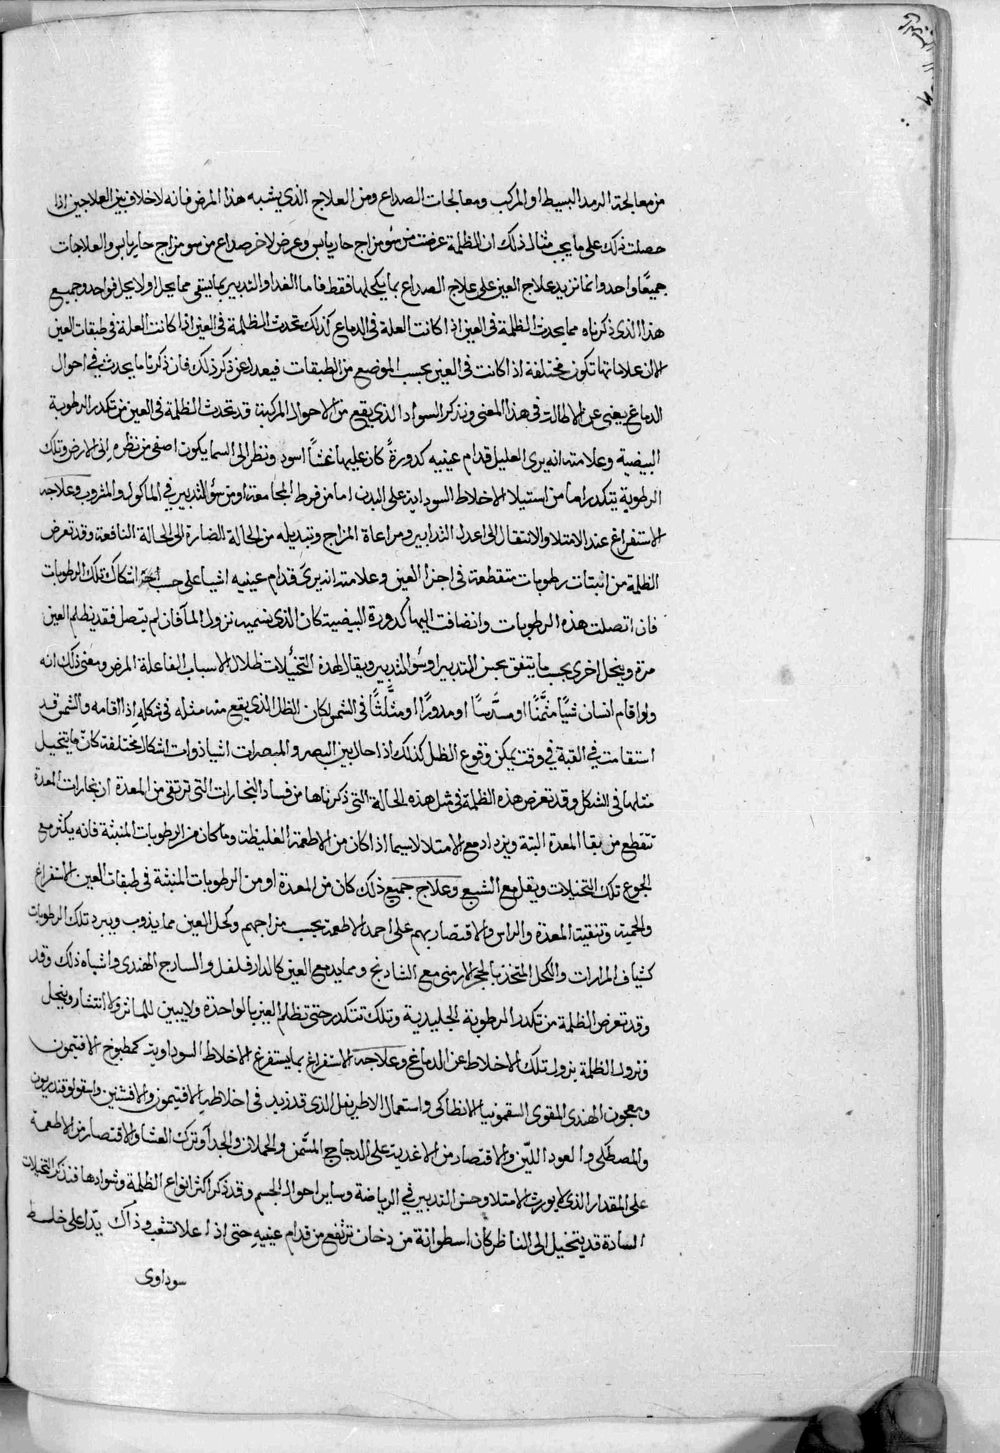 من معالجة الرمد البسيط او المركب ومعالجات الصداع ومن العلاج الذي يشبه هذا المرض فانه لا خلاف بين العلاجين اذا
حصلت ذلك على ما يجب مثال ذلك ان الظلمة عرضت من سو مزاج حار يابس وعرض لاخر صداع من سو مزاج حار يابس والعلاجات
جميعًا واحد وانما تزيد علاج العين على علاج الصداع بما يكحلها فقط فاما الغدا والتدبير بما يستقى مما يحل او لا يحل فواحد وجميع
هذا الذي ذكرناه مما يحدث الظلمة في العين اذا كانت العلة في الدماغ كذلك تحدث الظلمة في العين اذا كانت العلة في طبقات العين
الا ان علاماتها تكون مختلفة اذا كانت في العين بحسب الموضع من الطبقات فيعدل عن ذكر ذلك فان ذكرنا ما يحدث في احوال
الدماغ يغني عن الاطالة في هذا المعنى ونذكر السواد الذي يقع من الاحوال المركبة قد تحدث الظلمة في العين من تكدر الرطوبة
البيضية وعلامته انه يرى العليل قدام عينيه كدورةً كان عليها غشًا اسود ونظر الى السما يكون اصفى من نظره الى الارض وتلك
الرطوبة تتكدر اما من استيلا الاخلاط السوداية على البدن اما من فرط المجامعة او من سؤ التدبير في الماكول والمشروب وعلاجه
الاستفراغ عند الامتلا والانتقال الى اعدل التدابير ومراعاة المزاج وتبديله من الحالة الضارة الى الحالة النافعة وقد تعرض
الظلمة من انبثات رطوبات متقطعة في اجزا العين وعلامته انه يرى قدام عينيه اشيا على حسب اشكال تلك الرطوبات
فان اتصلت هذه الرطوبات وانضافت اليها كدورة البيضية كان الذي نسميه نزول الما فان لم يتصل فقد يظلم العين
مرة وينحل اخرى بحسب ما يتفق بحسن التدبير او سؤ التدبير ويقال لهذه التخيّلات ظلال الاسباب الفاعلة المرض ومعنى ذلك انه
ولو اقام انسان شيًا مثمّنًا او مسدّسًا او مدورًا او مثلّثًا في الشمس لكان الظل الذي يقع منه مثله في شكله اذا اقامه والشمس قد
استقامت في القبة في وقت يمكن وقوع الظل كذلك اذا حال بين البصر والمبصرات اشيا ذوات اشكال مختلفة كان ما يتخيل
مثلها في الشكل وقد تعرض هذه الظلمة في مثل هذه الحالة التي ذكرناها من فساد البخارات التي ترتقى من المعدة ان بخارات المعدة
تتقطع من نقا المعدة البتة ويزداد مع الامتلا لاسيما اذا كان من الاطعمة الغليظة وما كان من الرطوبات المنبثة فانه يكثر مع
الجوع تلك التخيلات ويقل مع الشبع وعلاج جميع ذلك كان من المعدة او من الرطوبات المنبثة في طبقات العين الاستفراغ
والحمية وتنقية المعدة والراس والاقتصار بهم على احمد الاطعمة بحسب مزاجهم وكحل العين مما يذوب ويبرد تلك الرطوبات
كشياف المرارات والكحل المتخذ بالحجر الارمني مع الشادنج ومما يدمع العين كالدارفلفل والسادج الهندي واشباه ذلك وقد
وقد تعرض الظلمة من تكدر الرطوبة الجليدية وتلك تتكدر حتى تظلم العين بالواحدة ولا يبين للما اثر ولا انتشار وينحل
وتزول الظلمة بزوال تلك الاخلاط عن الدماغ وعلاجه الاستفراغ بما يستفرغ الاخلاط السوداوية كمطبوخ الافتيمون
ومعجون الهندي المقوى السقمونيا الانطاكي واستعمال الاطريفل الذي قد زيد في اخلاطه الافتيمون والافسنتين واسقولوقندريون
والمصطكى والعود الليّن والاقتصار من الاغدية على الدجاج المسّمن والحملان والجدآ وترك العشا والاقتصار من الاطعمة
على المقدار الذي لا يورث الامتلا وحسن التدبير في الرياضة وساير احوال الجسم وقد ذكر اكثر انواع الظلمة وسوادها فنذكر التخيلات
السادة قد يتخيل الى الناظر كان اسطوانة من دخان ترتفع من قدام عينيه حتى اذا علا تشعب وذاك يدل على خلط
سوداوى